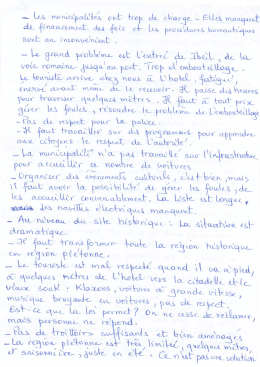 - Les municipalités ont trop de charge - Elles manquent
de financement des fois et les procédures bureautiques
sont un inconvénient.
- Le grand problème est l'entrée de Jbeil, de la
voie romaine jusqu'au port. Trop d'embouteillage.
Le touriste arrive chez nous à l'hotel, fatigué,
enervé avant même de le recevoir. Il passe du heures
pour traverser quelques mètres. Il faut à tout prix
gérer les foules, résoudre le problème de l'embouteillage
- Pas de respect pour la police.
- Il faut travailler sur des programmes pour apprendre
aux citoyens le respect de l'autorité.
- La municipalité n'a pas travaillé sur l'infrastructure
pour accueillir ce nombre de voitures
- Organiser des évenements culturels, c'est bien, mais
il faut avoir la possibilité de gérer les foules, de
les accueillir convenablement. La liste est longue,
les navettes éléctriques manquent.
- Au niveau du site historique : La situation est
dramatique
- Il faut transformer toute la région historique
en région piétonne.
- Le touriste est mal respecté quand il va à pied,
à quelques mètres de l'hotel vers la citadelle et le
vieux souk : Klaxons, voitures à grande vitesse,
musique bruyante en voitures, pas de respect.
Est-ce que la loi permet? On ne cesse de réclamer,
mais personne ne répond.
- Pas de trottoirs suffisants et bien aménagés
- La région piétonne est très limitée, quelques mètres,
et saisonnière, juste en été. Ce n'est pas une solution